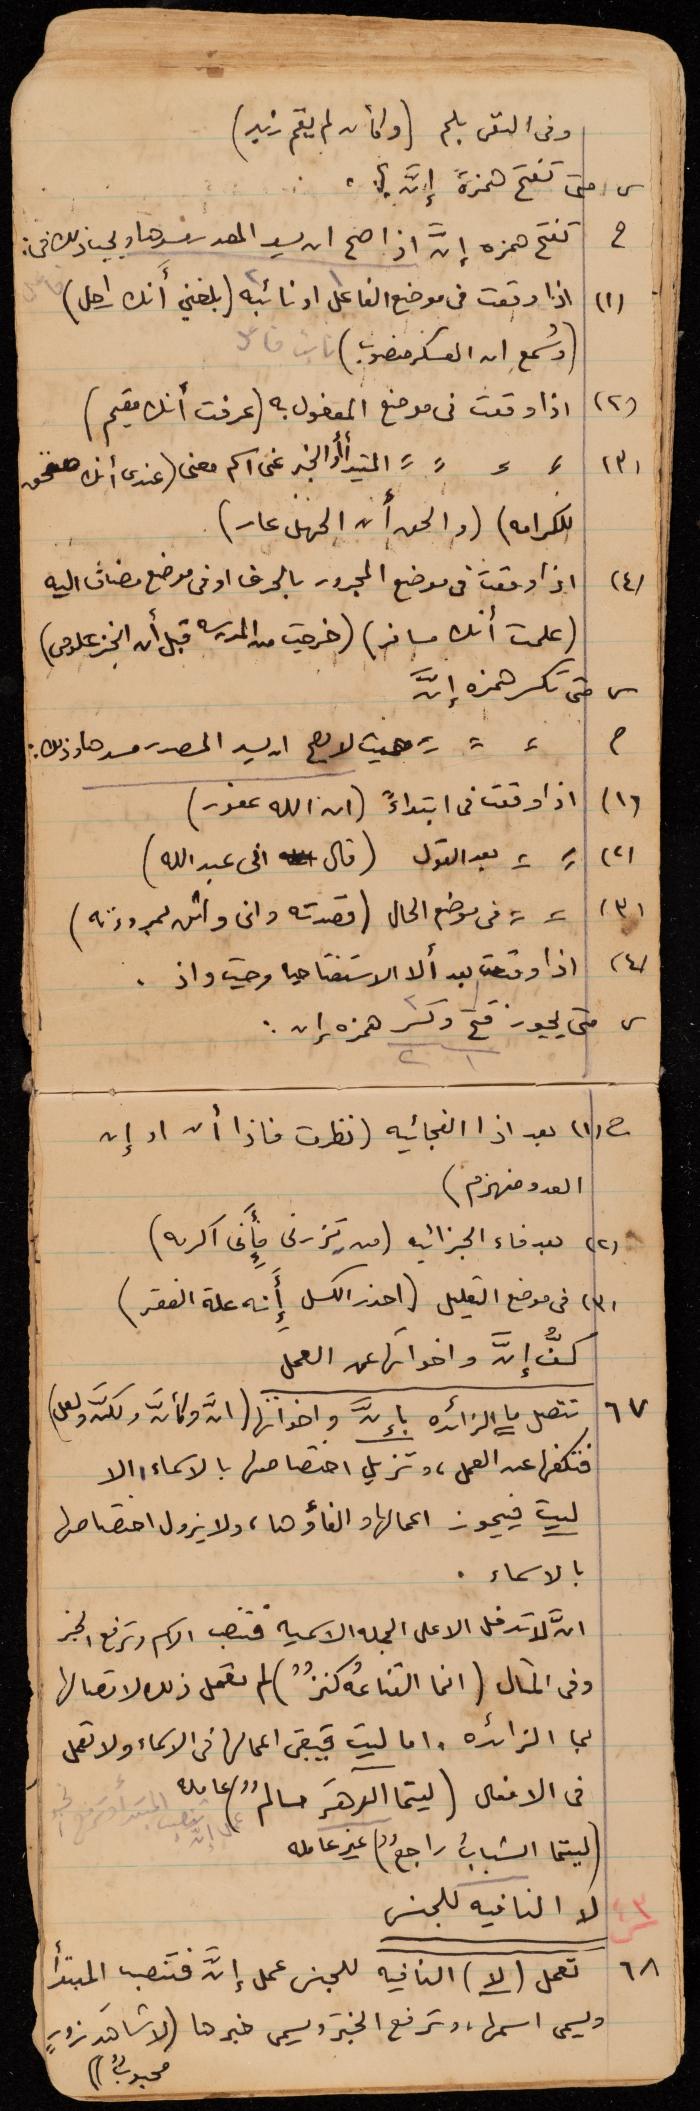 وفى النفى بلم (وكأن لم يقم زيد)
س متى تفتح همزة إنَّ ؟
ج تفتح همزه إنَّ اذا صح ان يسد المصدر مسدها ويجب ذلك فى :
(١) اذا وقعت فى موضع الفاعل او نائبه (بلغني أَنك راحل) فاعل
(وسُمع ان العسكر منصور) نائب فاعل
(٢) اذا وقعت فى موضع المفعول به (عرفت أنك مقيم)
(٣) " " " " المبتدأ أو الخبر عن اسم معنى (عندى أنك مستحق
للكرامه) (والحق أن الجهل عار)
(٤) اذا وقعت فى موضع المجرور بالحرف او فى موضع مضاف اليه
(علمت أنك مسافر) (خرجت من المدرسه قبل أن الخبز
س متى تكسر همزه إنَّ
ج " " " حيث لا يصح ان يسد المصدر مسدها وذلك :
(١) اذا وقعت فى ابتداءً (ان الله غفور)
(٢) " " بعد القول (قال انى عبد الله)
(٣) " " فى موضع الحال (قصدته وانى واثق بمروءته)
(٤) اذا وقعت بعد ألا الاستفتاحيا وحيث واذ .
س متى يجوز فتح وكسر همزه إن :
١ ٢
ج (١) بعد اذا الفجائيه (نظرت فاذا أن او إن
العدو منهزم)
(٢) بعد فاء الجزائيه (من يزرنى فأَِنى اكرمه)
(٣) فى موضع التعليل (احذر الكسل أَِنه علة الفقر)
كفُّ إنَّ واخواتها عن العمل
٦٧ تتصل ما الزائده بإنَّ واخواتها (انَّ وكأنَّ ولكنَّ ولعل)
فتكفها عن العمل، وتزيل اختصاصها بالاسماء، الا
ليت فيجوز اعمالها والغاؤها، ولا يزول اختصاصها
بالاسماء .
انَّ لا تدخل الا على الجمله الاسمية فتنصب الاسم وترفع الخبر
وفى المثال (انما القناعهُ كنزٌ) لم تعمل ذلك لاتصالها
بما الزائده . اما ليت فيبقى اعمالها فى الاسماء ولا تعمل
فى الافعال (ليتما الدهرَ سالمٌ) عامله
عمل إنَّ تنصب المبتدأ وترفع الخبر
(ليتما الشبابُ راجعٌ) غير عامله
لا النافيه للجنس
٦٨ تعمل (لا) النافيه للجنس عمل إنَّ فتنصب المبتدأ
ويسمى اسمها، وترفع الخبر ويسمى خبرها (لا شاهدَ زورٍ
محبوبٌ)